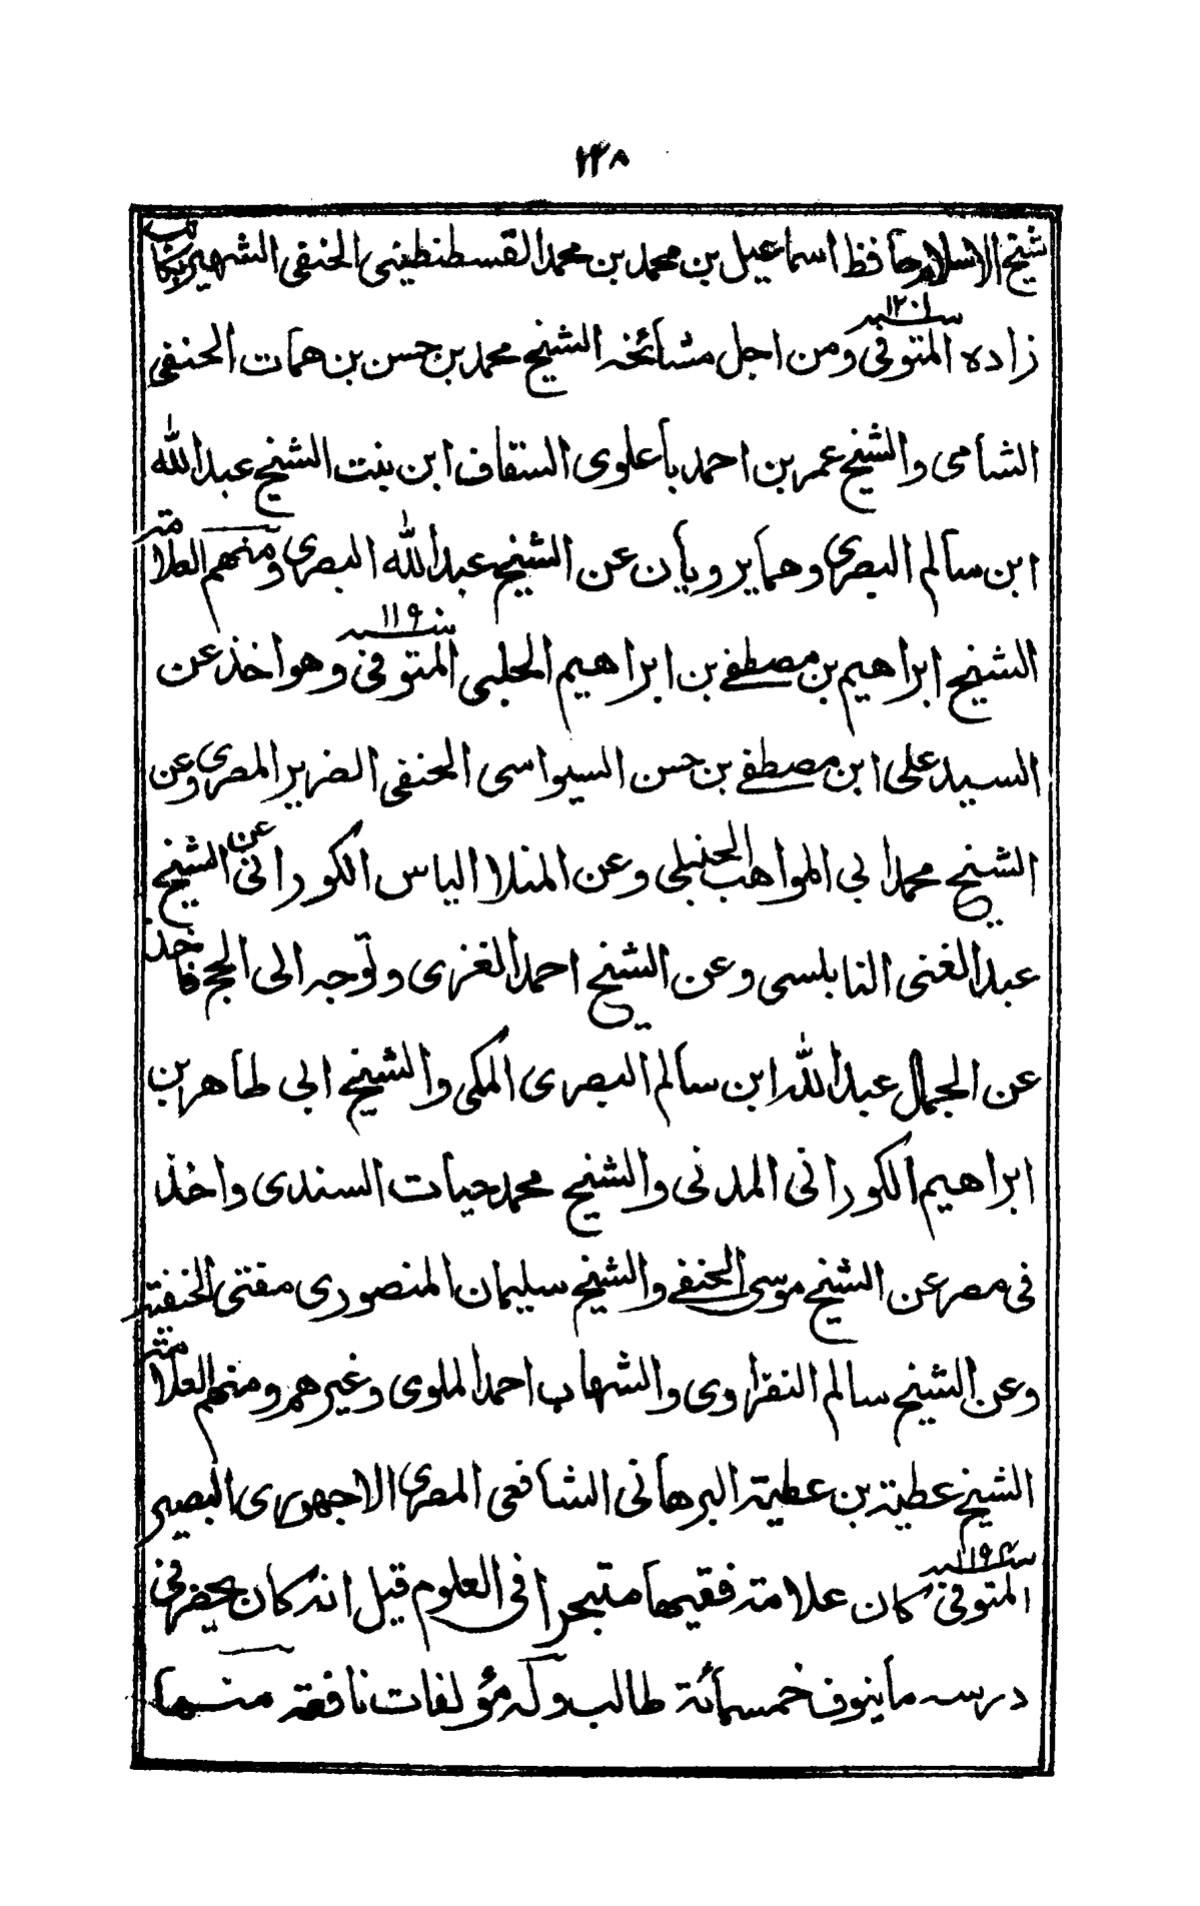 ٢٣٨
شيخ الاسلام حافظ اسماعيل بن محمد بن محمد القسطنطيني الحنفي الشهير بكاتب
زاده المتوفى سنة ١٢٠١ ومن اجل مشائخه الشيخ محمد بن حسن بن همات الحنفي
الشامى والشيخ عمر بن احمد باعلوى السقاف ابن بنت الشيخ عبد الله
ابن سالم البصرى وهما يرويان عن الشيخ عبد الله البصرى ومنهم العلامة
الشيخ ابراهيم بن مصطفے بن ابراهيم الحلبى المتوفى سنة ١١٩٠ وهو اخذ عن
السيد على ابن مصطفے بن حسن السيواسى الحنفى الضرير المصرى وعن
الشيخ محمد ابي المواهب الحنبلى وعن المنلا الياس الكورانى عن الشيخ
عبد الغنى النابلسى وعن الشيخ احمد الغزى وتوجه الى الحج فاخذ
عن الجمال عبد الله ابن سالم البصرى المكى والشيخ ابى طاهر بن
ابراهيم الكورانى المدنى والشيخ محمد حيات السندى واخذ
فى مصر عن الشيخ موسى الحنفے والشيخ سليمان المنصورى مفتى الحنفية
وعن الشيخ سالم النفراوى والشهاب احمد الملوى وغيرهم ومنهم العلامة
الشيخ عطية بن عطية البرهانى الشافعى المصرى الاجهورى البصير
المتوفى سنة كان علامة فقيها متبحرا فى العلوم قيل انه كان يحضر فى
درسه ما ينوف خمسمائة طالب وله مؤلفات نافعة منها